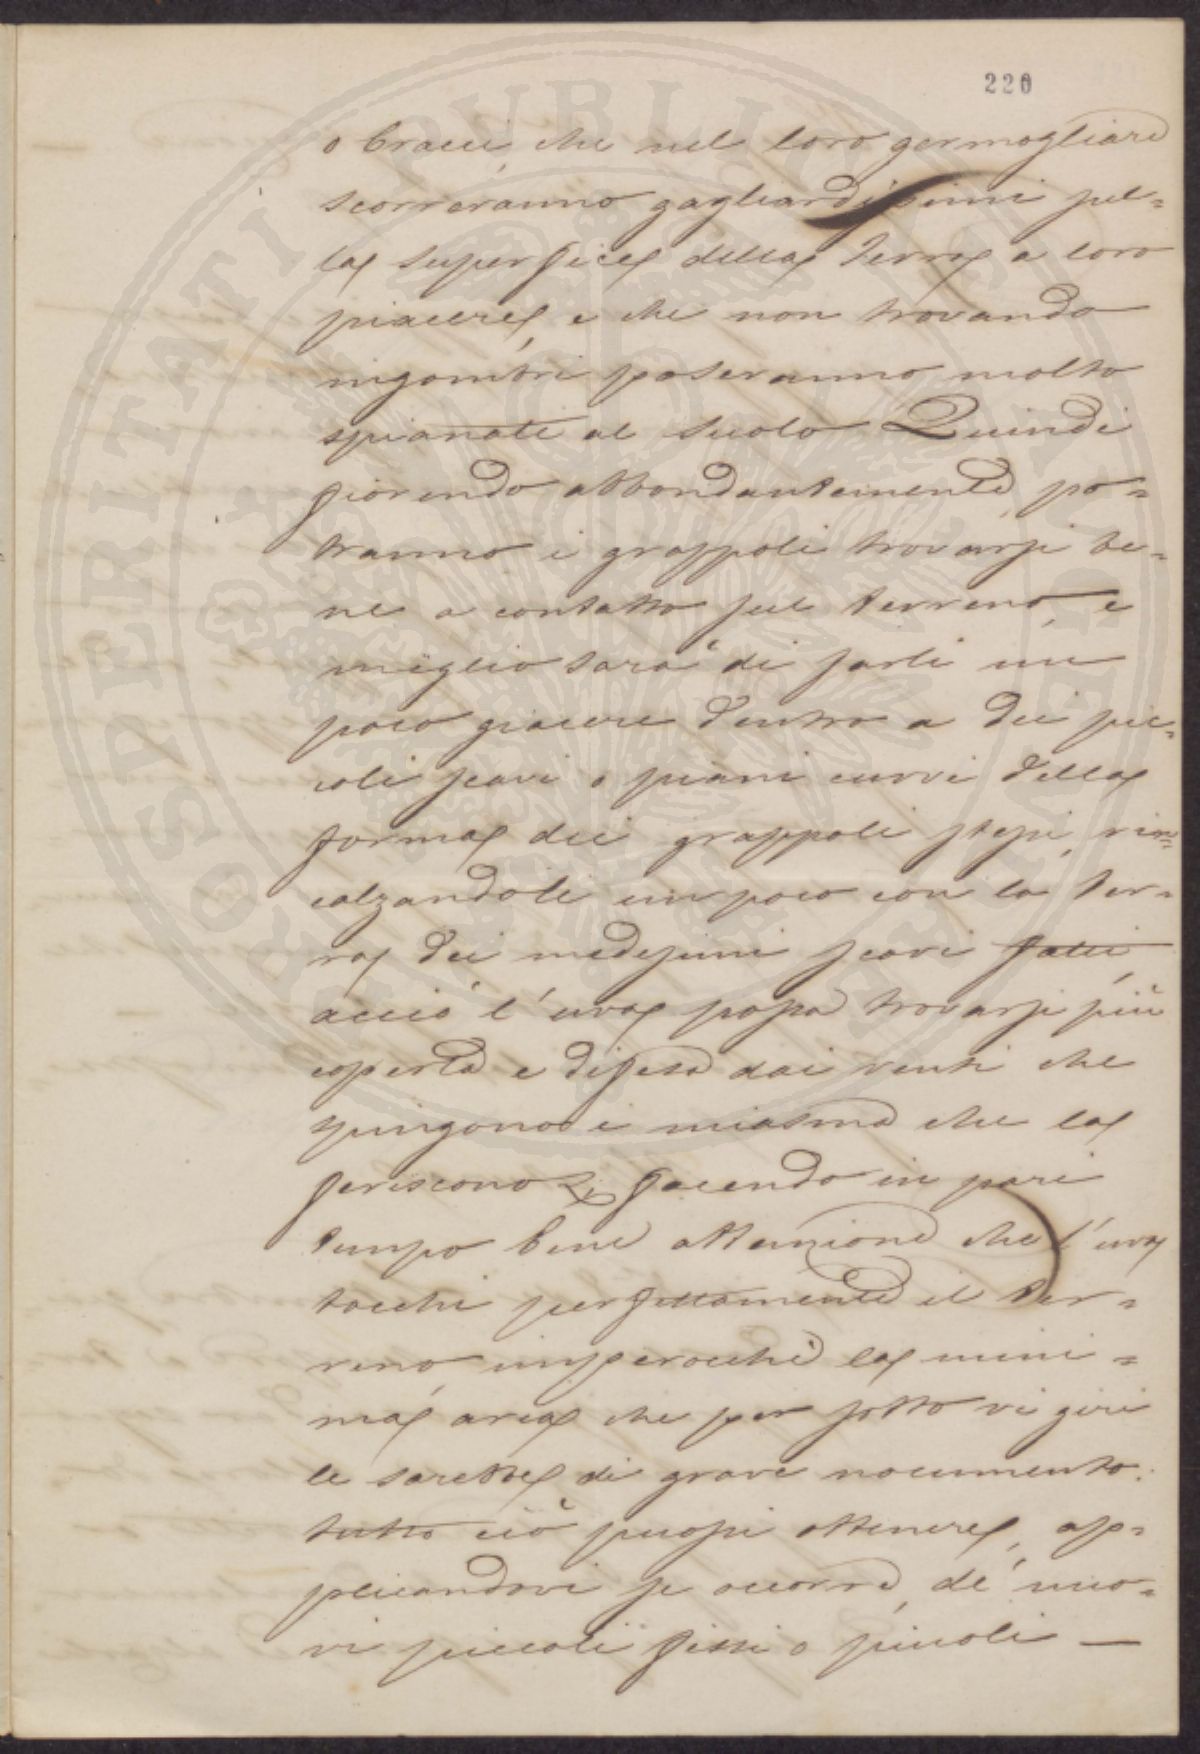 220
o bracci, che nel loro germogliare
scorreranno gagliardissimi sul=
la superfice della terra a loro
piacere, e che non trovando
ingombri poseranno molto
spianati al suolo Quindi
fiorendo abbondantemente, po=
tranno i grappoli trovarsi be=
ne a contatto sul terreno, e
meglio sarà di farli un
poco giacere dentro a dei pic=
coli scavi o piani curvi della
forma dei grappoli stessi, rin=
calzandoli un poco con la ter=
ra dei medesimi scavi fatti
acciò l'uva possa trovarsi più
coperta e difesa dai venti che
spingono i miasma che la
feriscono facendo in pari
tempo bene attenzione che l'uva
tocchi perfettamente il ter=
reno imperocchè la mini=
ma aria che per sotto vi giri
le sarebbe di grave nocumento:
tutto ciò puossi ottenere, ap=
plicandovi se occorra, de' nuo=
vi piccoli fissi o piuoli —
PROSPERITATI PUBLICAE AUGENDAE